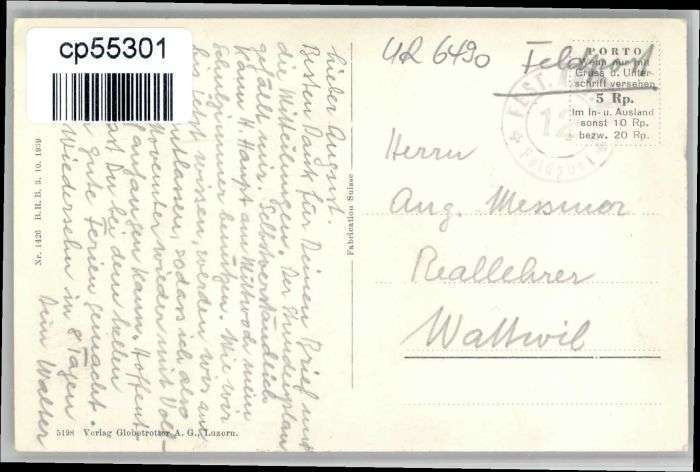 cp55301
4R 6490
Feldpost
PORTO
Wenn nur mit
Gruss u. Unter-
schrift versehen
5 Rp.
Im In- u. Ausland
sonst 10 Rp.
bezw. 20 Rp.
FEST.
12
Feldpost
Herrn
Aug. Messmer
Reallehrer
Wattwil
Lieber August!
Besten Dank für Deinen Brief und
die Mitteilungen. Der Stundenplan
gefällt mir. Selbstverständlich
kann H. Haupt am Mittwoch mein
Schulzimmer benützen. Wie wir
bis jetzt wissen, werden wir am
entlassen, sodass ich also
November wieder mit Voll-
anfangen kann. Hoffent-
st Du bei dem hellen
gute Ferien gemacht.
Wiedersehn in 8 Tagen
Dein Walter
Fabrication Suisse
Nr. 1426 B.R.B. 3. 10. 1939
5198 Verlag Globetrotter A. G., Luzern.